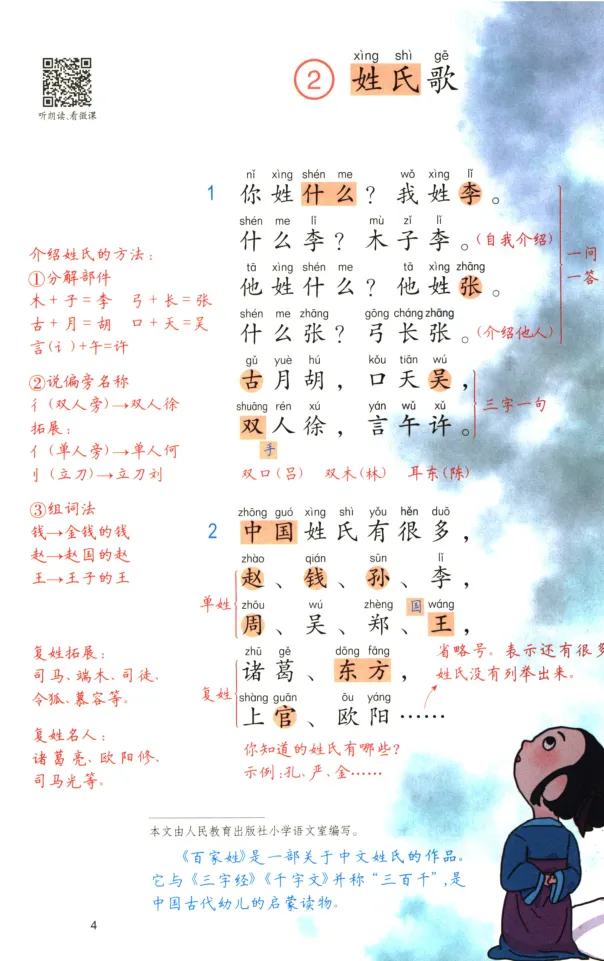 xìng shì gē
② 姓氏歌
听朗读、看微课
nǐ xìng shén me wǒ xìng lǐ
1 你姓什么？我姓李。
shén me lǐ mù zǐ lǐ
什么李？木子李。(自我介绍)
tā xìng shén me tā xìng zhāng
他姓什么？他姓张。
shén me zhāng gōng cháng zhāng
什么张？弓长张。(介绍他人)
一问
一答
gǔ yuè hú kǒu tiān wú
古月胡，口天吴，
shuāng rén xú yán wǔ xǔ
双人徐，言午许。
三字一句
手
双口(吕) 双木(林) 耳东(陈)
介绍姓氏的方法：
①分解部件
木+子=李 弓+长=张
古+月=胡 口+天=吴
言(讠)+午=许
②说偏旁名称
彳(双人旁)→双人徐
拓展：
亻(单人旁)→单人何
刂(立刀)→立刀刘
③组词法
钱→金钱的钱
赵→赵国的赵
王→王子的王
zhōng guó xìng shì yǒu hěn duō
2 中国姓氏有很多，
zhào qián sūn lǐ
赵、钱、孙、李，
单姓
zhōu wú zhèng 国 wáng
周、吴、郑、王，
zhū gě dōng fāng
诸葛、东方，
复姓
shàng guān ōu yáng
上官、欧阳……
省略号。表示还有很多
姓氏没有列举出来。
复姓拓展：
司马、端木、司徒、
令狐、慕容等。
复姓名人：
诸葛亮、欧阳修、
司马光等。
你知道的姓氏有哪些？
示例：孔、严、金……
本文由人民教育出版社小学语文室编写。
《百家姓》是一部关于中文姓氏的作品。
它与《三字经》《千字文》并称“三百千”，是
中国古代幼儿的启蒙读物。
4